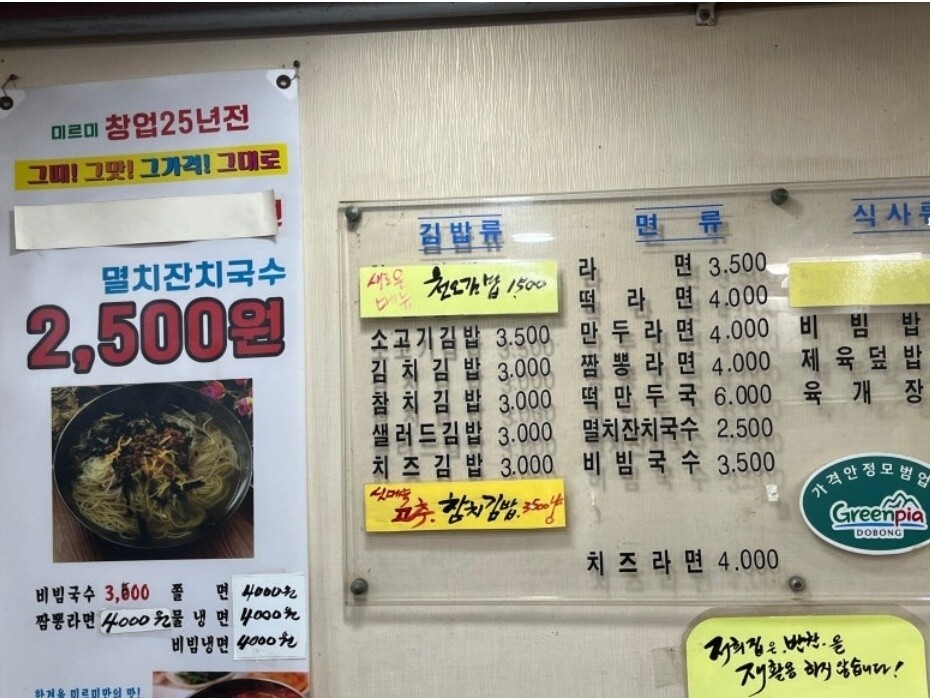 미르미 창업25년전
그때! 그맛! 그가격! 그대로
멸치잔치국수
2,500원
비빔국수 3,500 쫄 면 4000원
짬뽕라면 4000원 물 냉 면 4000원
비빔냉면 4000원
한겨울 미르미만의 맛!
김밥류
새로운 메뉴 천오김밥 1500
소고기김밥 3.500
김치김밥 3.000
참치김밥 3.000
샐러드김밥 3.000
치즈김밥 3.000
고추.참치김밥. 3500냥
면 류
라 면 3.500
떡 라 면 4.000
만두라면 4.000
짬뽕라면 4.000
떡만두국 6.000
멸치잔치국수 2.500
비빔국수 3.500
치즈라면 4.000
식사류
비 빔 밥
제육덮밥
육 개 장
가격안정모범업
Greenpia
DOBONG
저희집은.반찬.을
재활용 하지 않습니다!